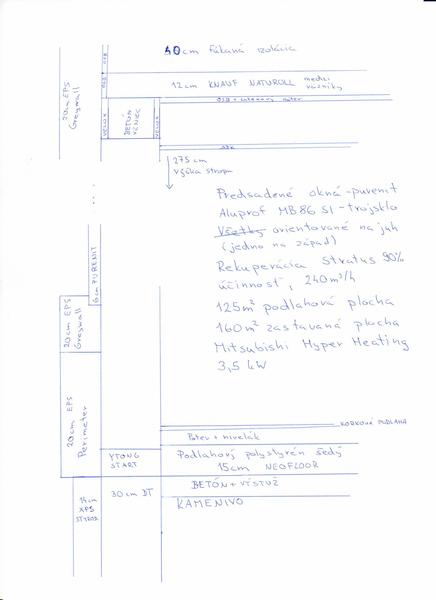 40cm Fúkaná izolácia
OSB
OSB
12cm KNAUF NATUROLL medzi
väzníky
20cm EPS
Greywall
VELOX
BETÓN
VENIEC
VELOX
275 cm
výška stropu
Predsadené okná - purenit
Aluprof MB86 SI - trojsklo
Všetky orientované na juh
(jedno na západ)
Rekuperácia Stratus 90%
účinnosť, 240m³/h
125m² podlahová plocha
160m² zastavaná plocha
Mitsubishi Hyper Heating
3,5 kW
6cm PURENIT
20cm EPS
Greywall
20cm EPS
Perimeter
KORKOVÁ PODLAHA
Poter + nivelák
YTONG
START
Podlahový polystyrén šedý
15cm NEOFLOOR
BETÓN + VÝSTUŽ
14cm
XPS
30cm DT
KAMENIVO